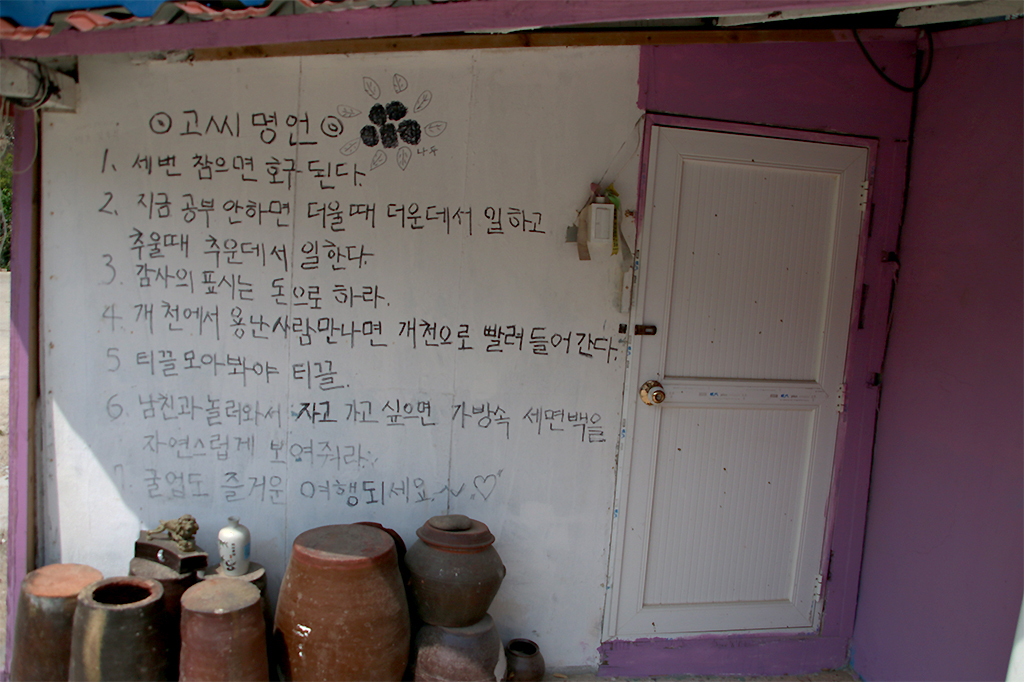 ⊙고씨명언⊙
나두
1. 세번 참으면 호구된다.
2. 지금 공부 안하면 더울때 더운데서 일하고
추울때 추운데서 일한다.
3. 감사의 표시는 돈으로 하라.
4. 개천에서 용난사람만나면 개천으로 빨려들어간다.
5 티끌모아봐야 티끌.
6. 남친과놀러와서 자고 가고 싶으면 가방속 세면백을
자연스럽게 보여줘라.
7. 굴업도 즐거운 여행되세요~♡